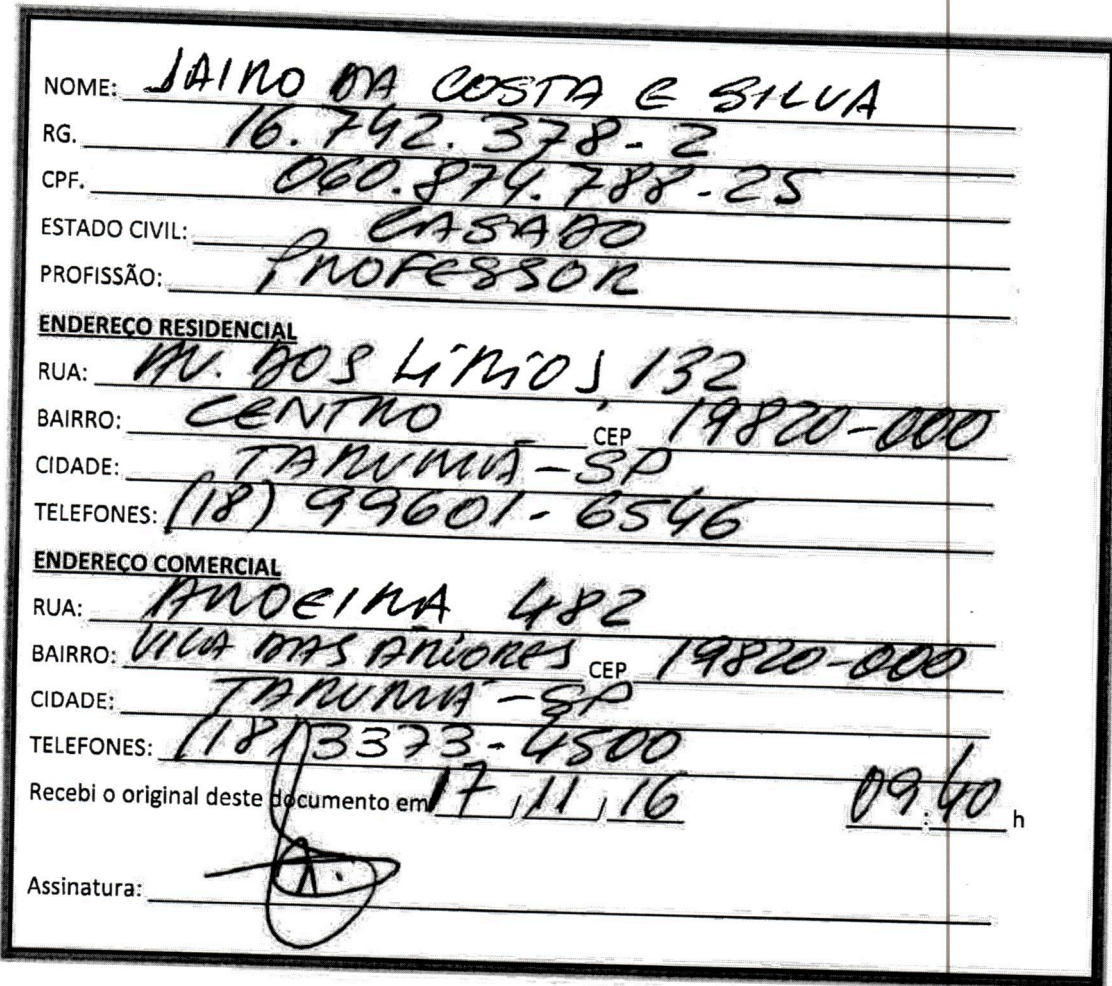 NOME: JAIRO DA COSTA E SILVA
RG. 16.742.378-2
CPF. 060.874.788-25
ESTADO CIVIL: CASADO
PROFISSÃO: PROFESSOR
ENDEREÇO RESIDENCIAL
RUA: AV. DOS LÍRIOS, 132
BAIRRO: CENTRO CEP 19820-000
CIDADE: TARUMÃ-SP
TELEFONES: (18) 99601-6546
ENDEREÇO COMERCIAL
RUA: AROEIRA 482
BAIRRO: VILA DAS ÁRVORES CEP 19820-000
CIDADE: TARUMÃ-SP
TELEFONES: (18) 3373-4500
Recebi o original deste documento em 17/11/16 09:40 h
Assinatura: